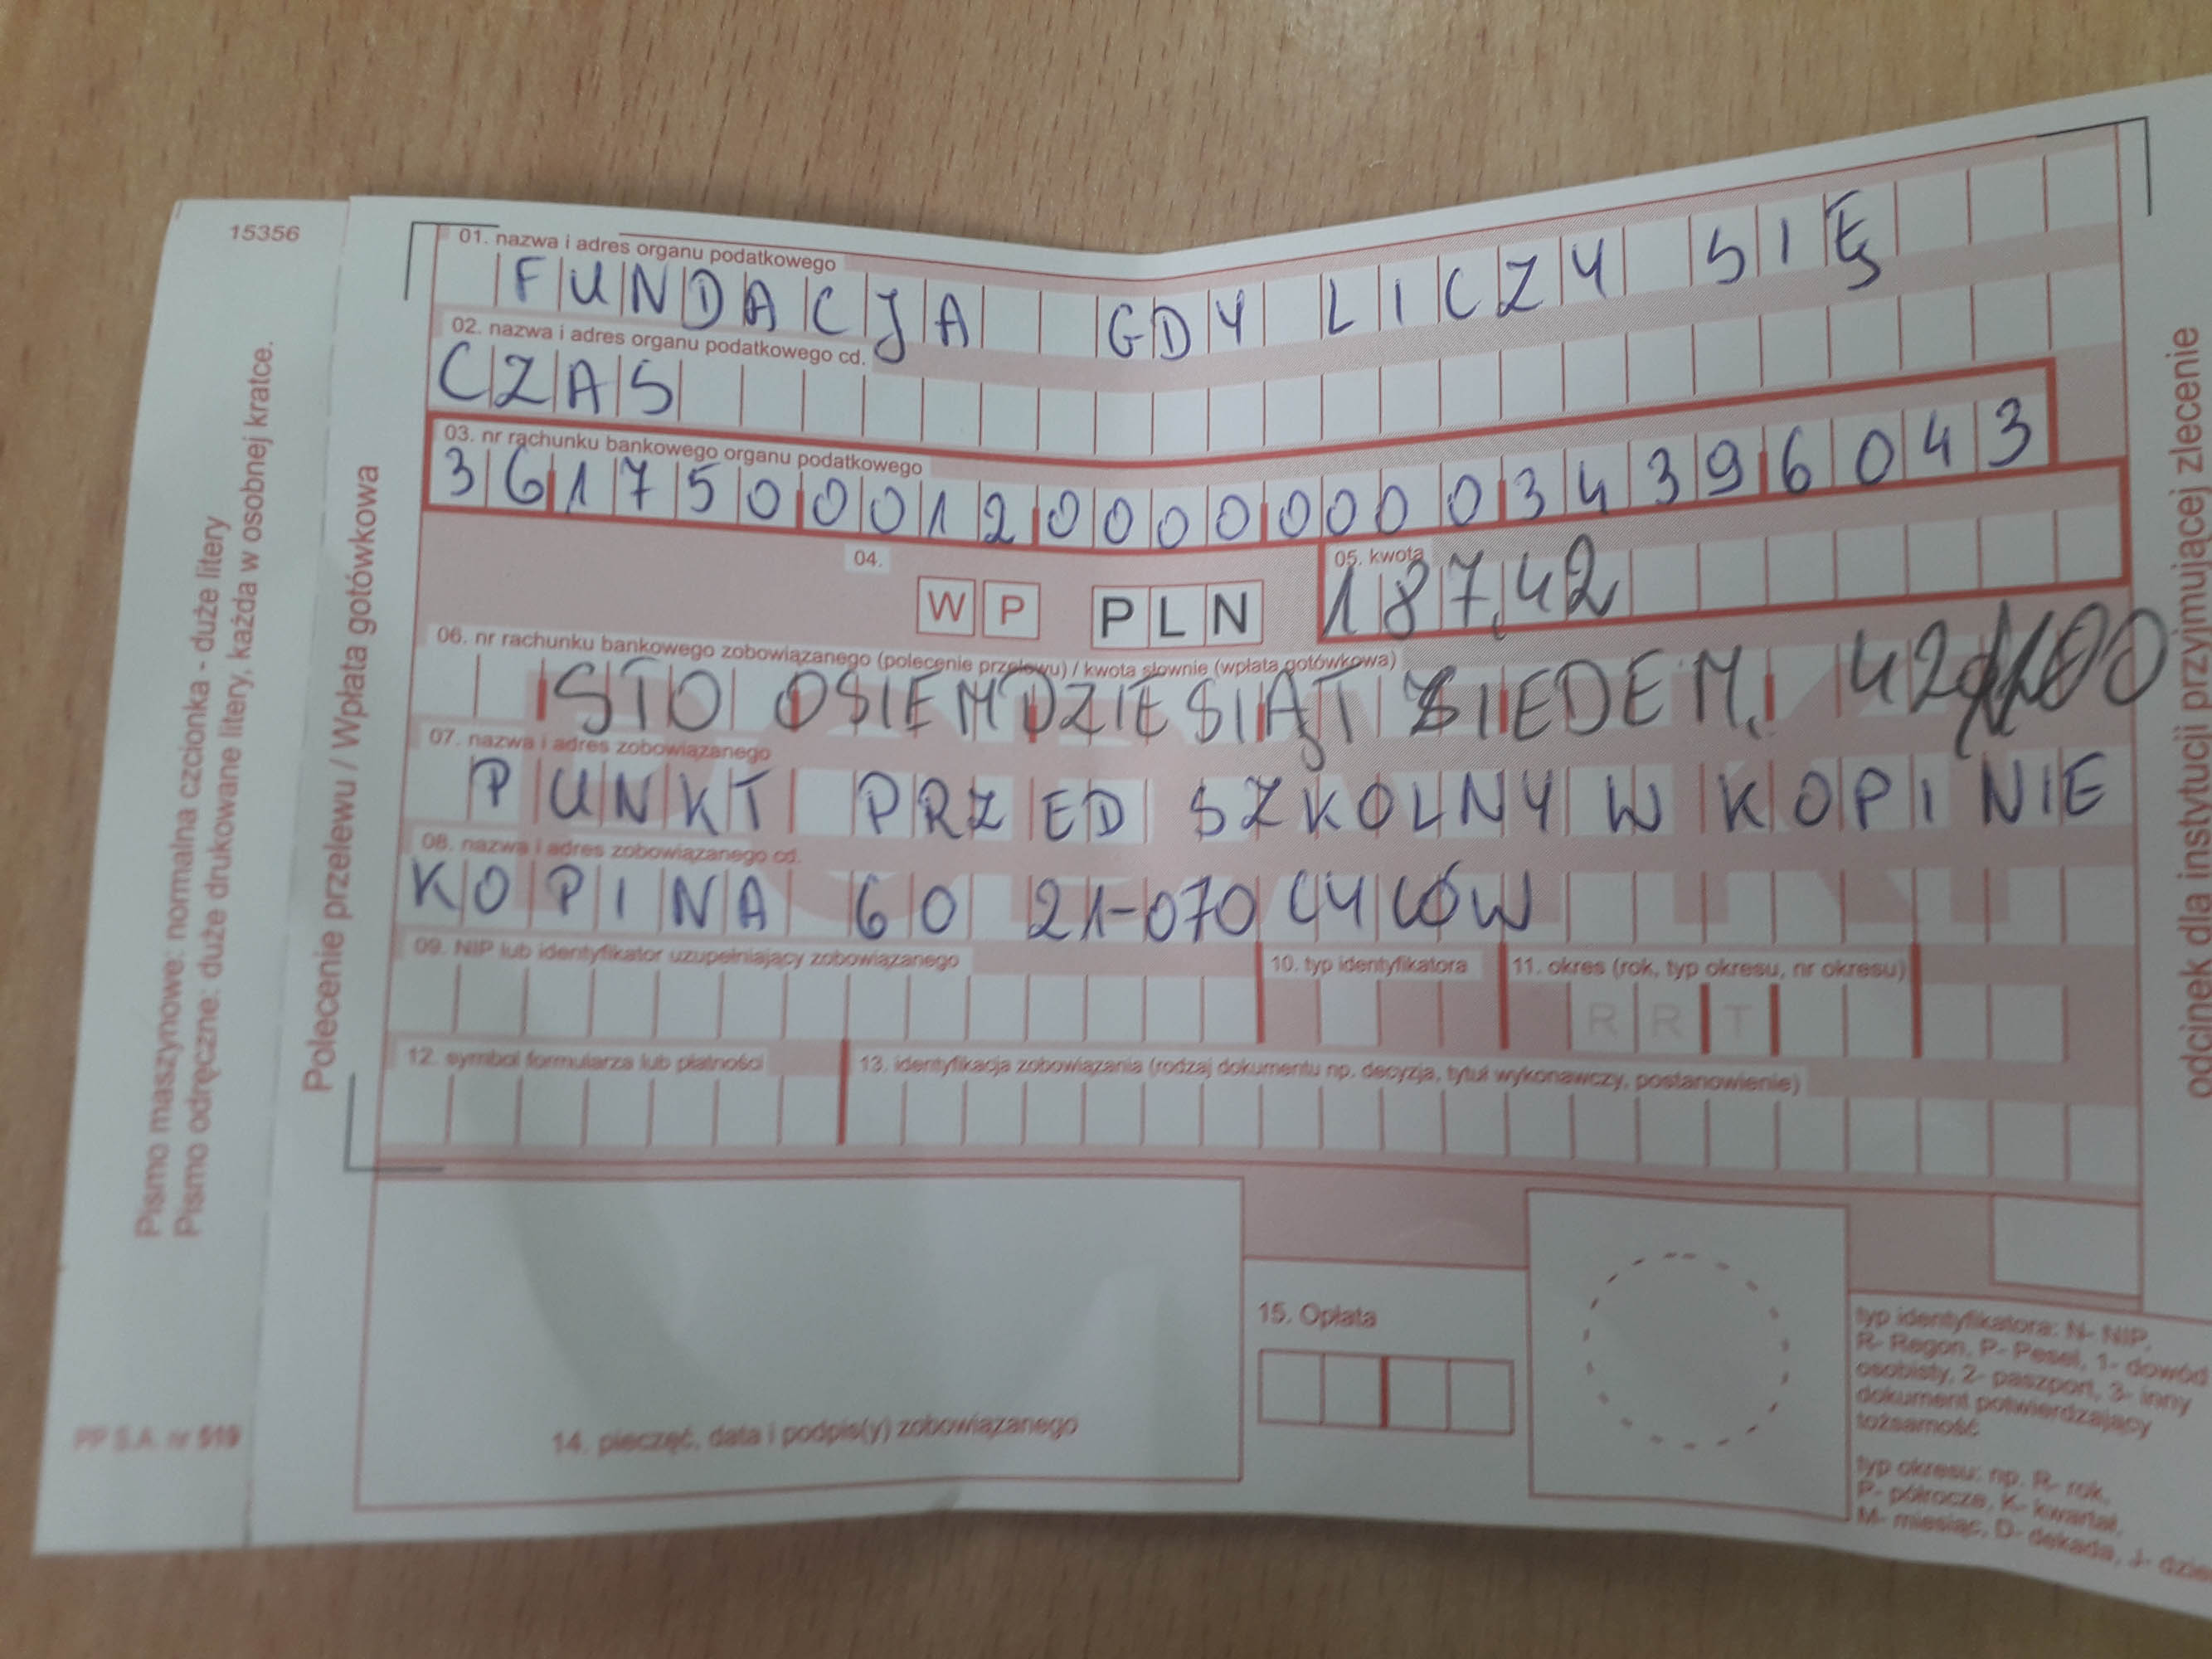 15356
Pismo maszynowe: normalna czcionka - duże litery
Pismo odręczne: duże drukowane litery, każda w osobnej kratce.
PP S.A. nr 919
Polecenie przelewu / Wpłata gotówkowa
01. nazwa i adres organu podatkowego
FUNDACJA GDY LICZY SIĘ
02. nazwa i adres organu podatkowego cd.
CZAS
03. nr rachunku bankowego organu podatkowego
36175000120000000034396043
04.
WP PLN
05. kwota
187,42
06. nr rachunku bankowego zobowiązanego (polecenie przelewu) / kwota słownie (wpłata gotówkowa)
STO OSIEMDZIESIĄT SIEDEM, 42/100
07. nazwa i adres zobowiązanego
PUNKT PRZEDSZKOLNY W KOPINIE
08. nazwa i adres zobowiązanego cd.
KOPINA 60 21-070 CYCÓW
09. NIP lub identyfikator uzupełniający zobowiązanego
10. typ identyfikatora
11. okres (rok, typ okresu, nr okresu)
R R T
12. symbol formularza lub płatności
13. identyfikacja zobowiązania (rodzaj dokumentu np. decyzja, tytuł wykonawczy, postanowienie)
14. pieczęć, data i podpis(y) zobowiązanego
15. Opłata
typ identyfikatora: N- NIP,
R- Regon, P- Pesel, 1- dowód
osobisty, 2- paszport, 3- inny
dokument potwierdzający
tożsamość
typ okresu: np. R- rok,
P- półrocze, K- kwartał,
M- miesiąc, D- dekada, J-
odcinek dla instytucji przyjmującej zlecenie